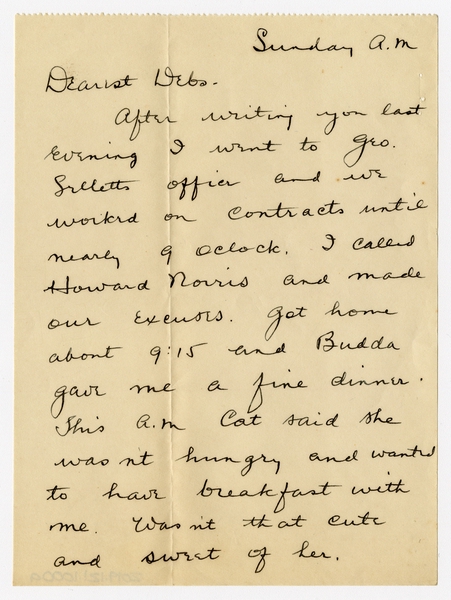 Sunday A.M
Dearest Debs.
After writing you last
evening I went to Geo.
Selletts office and we
worked on contracts until
nearly 9 oclock. I called
Howard Norris and made
our excuses. Got home
about 9:15 and Budda
gave me a fine dinner.
This A.M Cat said she
was nt hungry and wanted
to have breakfast with
me. Was nt that cute
and sweet of her.